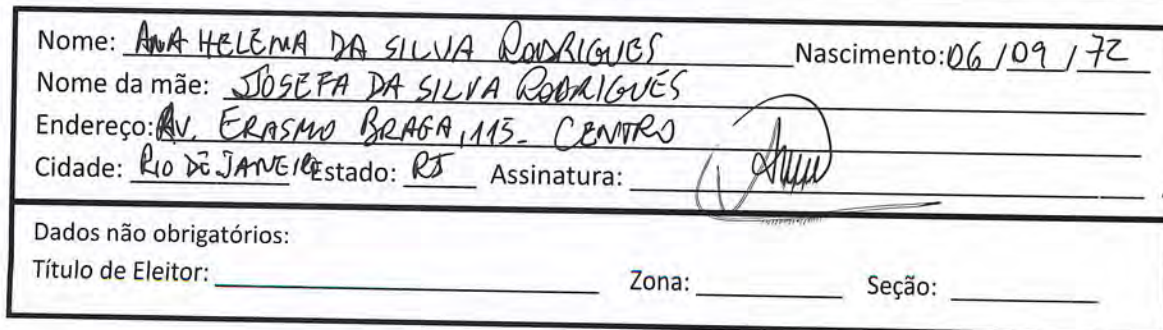 Nome: ANA HELENA DA SILVA RODRIGUES Nascimento: 06 / 09 / 72
Nome da mãe: JOSEFA DA SILVA RODRIGUES
Endereço: AV. ERASMO BRAGA, 115 - CENTRO
Cidade: RIO DE JANEIR Estado: RJ Assinatura:
Dados não obrigatórios:
Título de Eleitor: Zona: Seção: